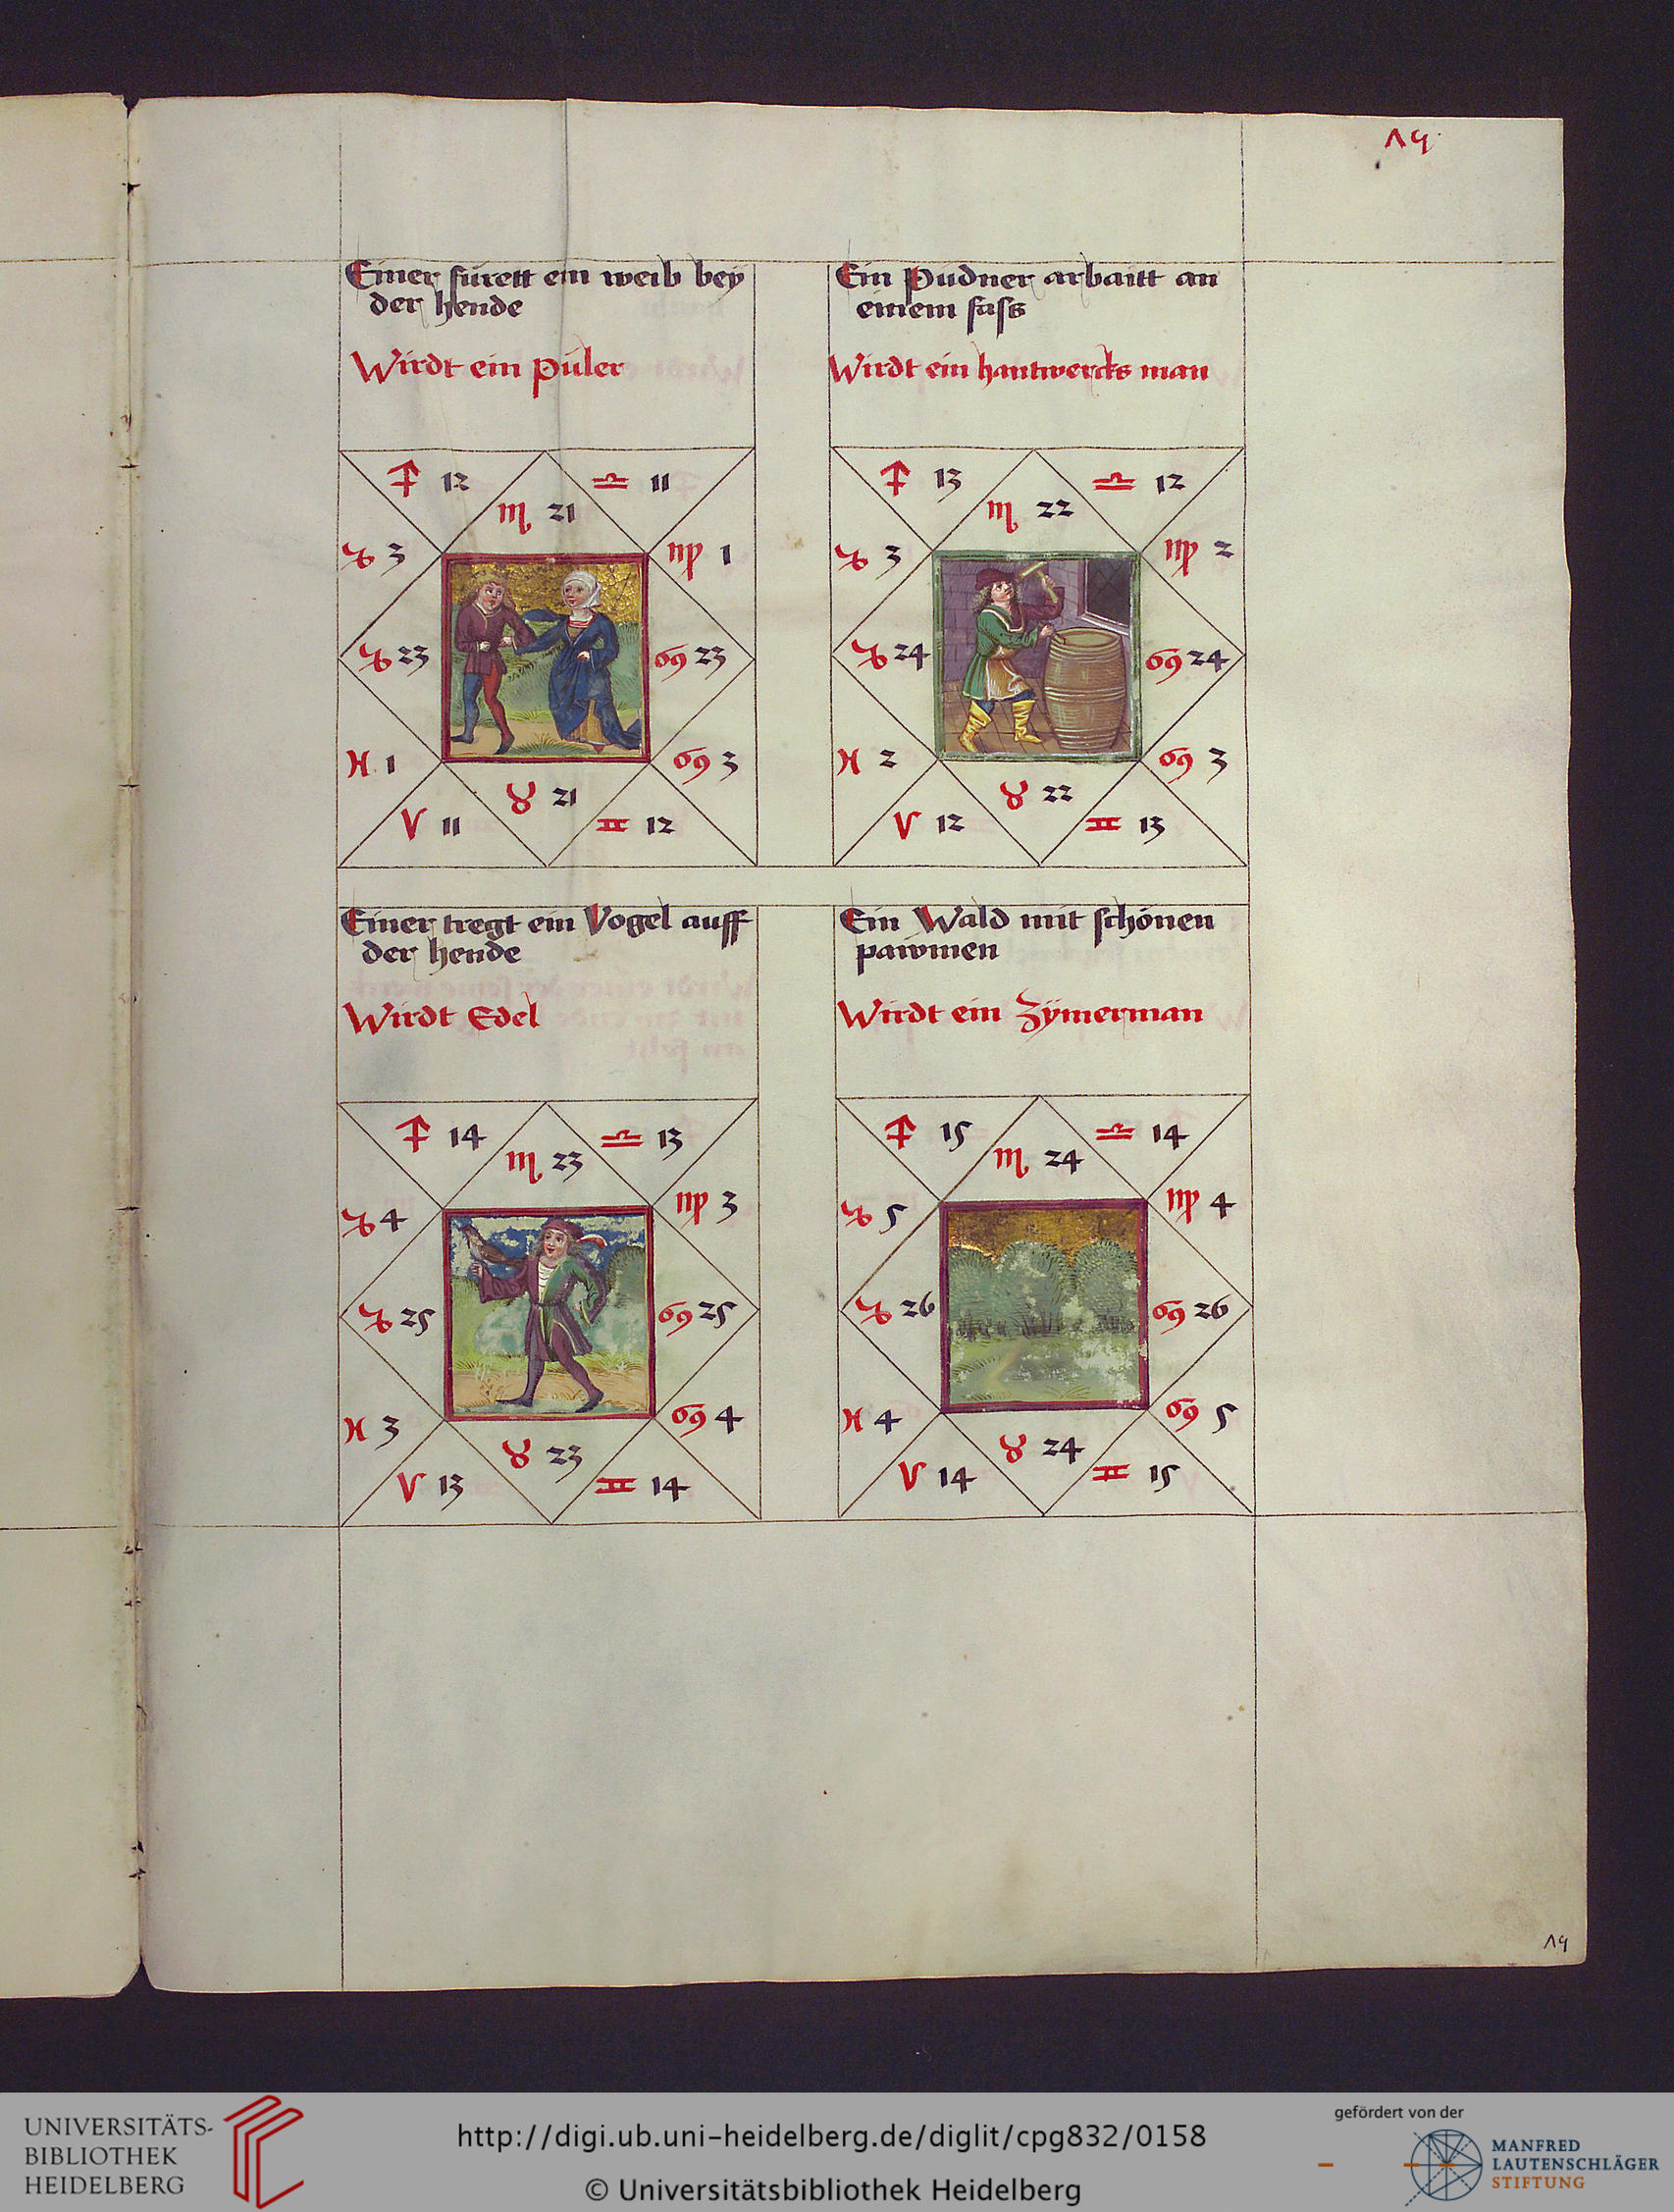 Λ9
Einer fürett ein weib bey
der hende
Wirdt ein püler
♐ 12
♎ 11
♏ 21
♑ 3
♍ 1
♑ 23
♋ 23
♓ 1
♋ 3
♉ 21
♈ 11
♊ 12
Ein Pudner arbaitt an
einem fass
Wirdt ein hantwercks man
♐ 13
♎ 12
♏ 22
♑ 3
♍ 2
♑ 24
♋ 24
♓ 2
♋ 3
♉ 22
♈ 12
♊ 13
Einer tregt ein Vogel auff
der hende
Wirdt Edel
♐ 14
♎ 13
♏ 23
♑ 4
♍ 3
♑ 25
♋ 25
♓ 3
♋ 4
♉ 23
♈ 13
♊ 14
Ein Wald mit schönen
pawmen
Wirdt ein Zÿmerman
♐ 15
♎ 14
♏ 24
♑ 5
♍ 4
♑ 26
♋ 26
♓ 4
♋ 5
♉ 24
♈ 14
♊ 15
Λ9
UNIVERSITÄTS-
BIBLIOTHEK
HEIDELBERG
http://digi.ub.uni-heidelberg.de/diglit/cpg832/0158
© Universitätsbibliothek Heidelberg
gefördert von der
MANFRED
LAUTENSCHLÄGER
STIFTUNG